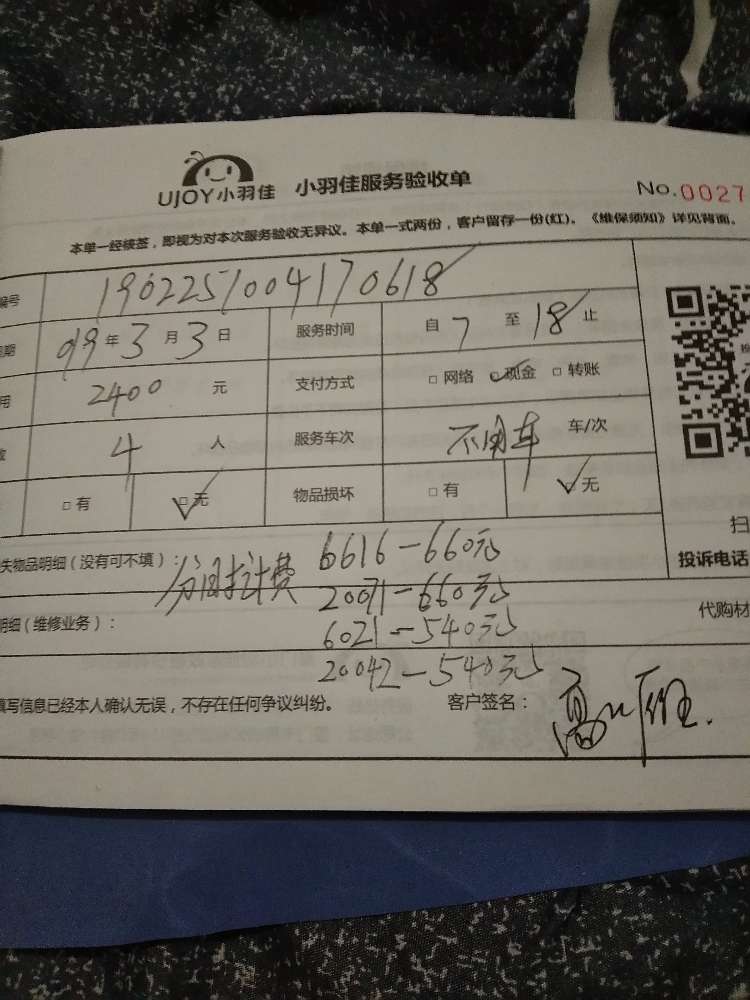 UJOY小羽佳 小羽佳服务验收单
No.0027
本单一经核签，即视为对本次服务验收无异议。本单一式两份，客户留存一份(红)。《维保须知》详见背面。
编号 1902251004170618
期 年 3 月 3 日 服务时间 自 7 至 18 止
用 2400 元 支付方式 □ 网络 □ 现金 □ 转账
数 4 人 服务车次 不用车 车/次
□ 有 □ 无 物品损坏 □ 有 无
扫
失物品明细（没有可不填）： 6616-660元
投诉电话
20071-660元
明细（维修业务）： 6021-540元
代购材
20042-540元
填写信息已经本人确认无误，不存在任何争议纠纷。 客户签名：